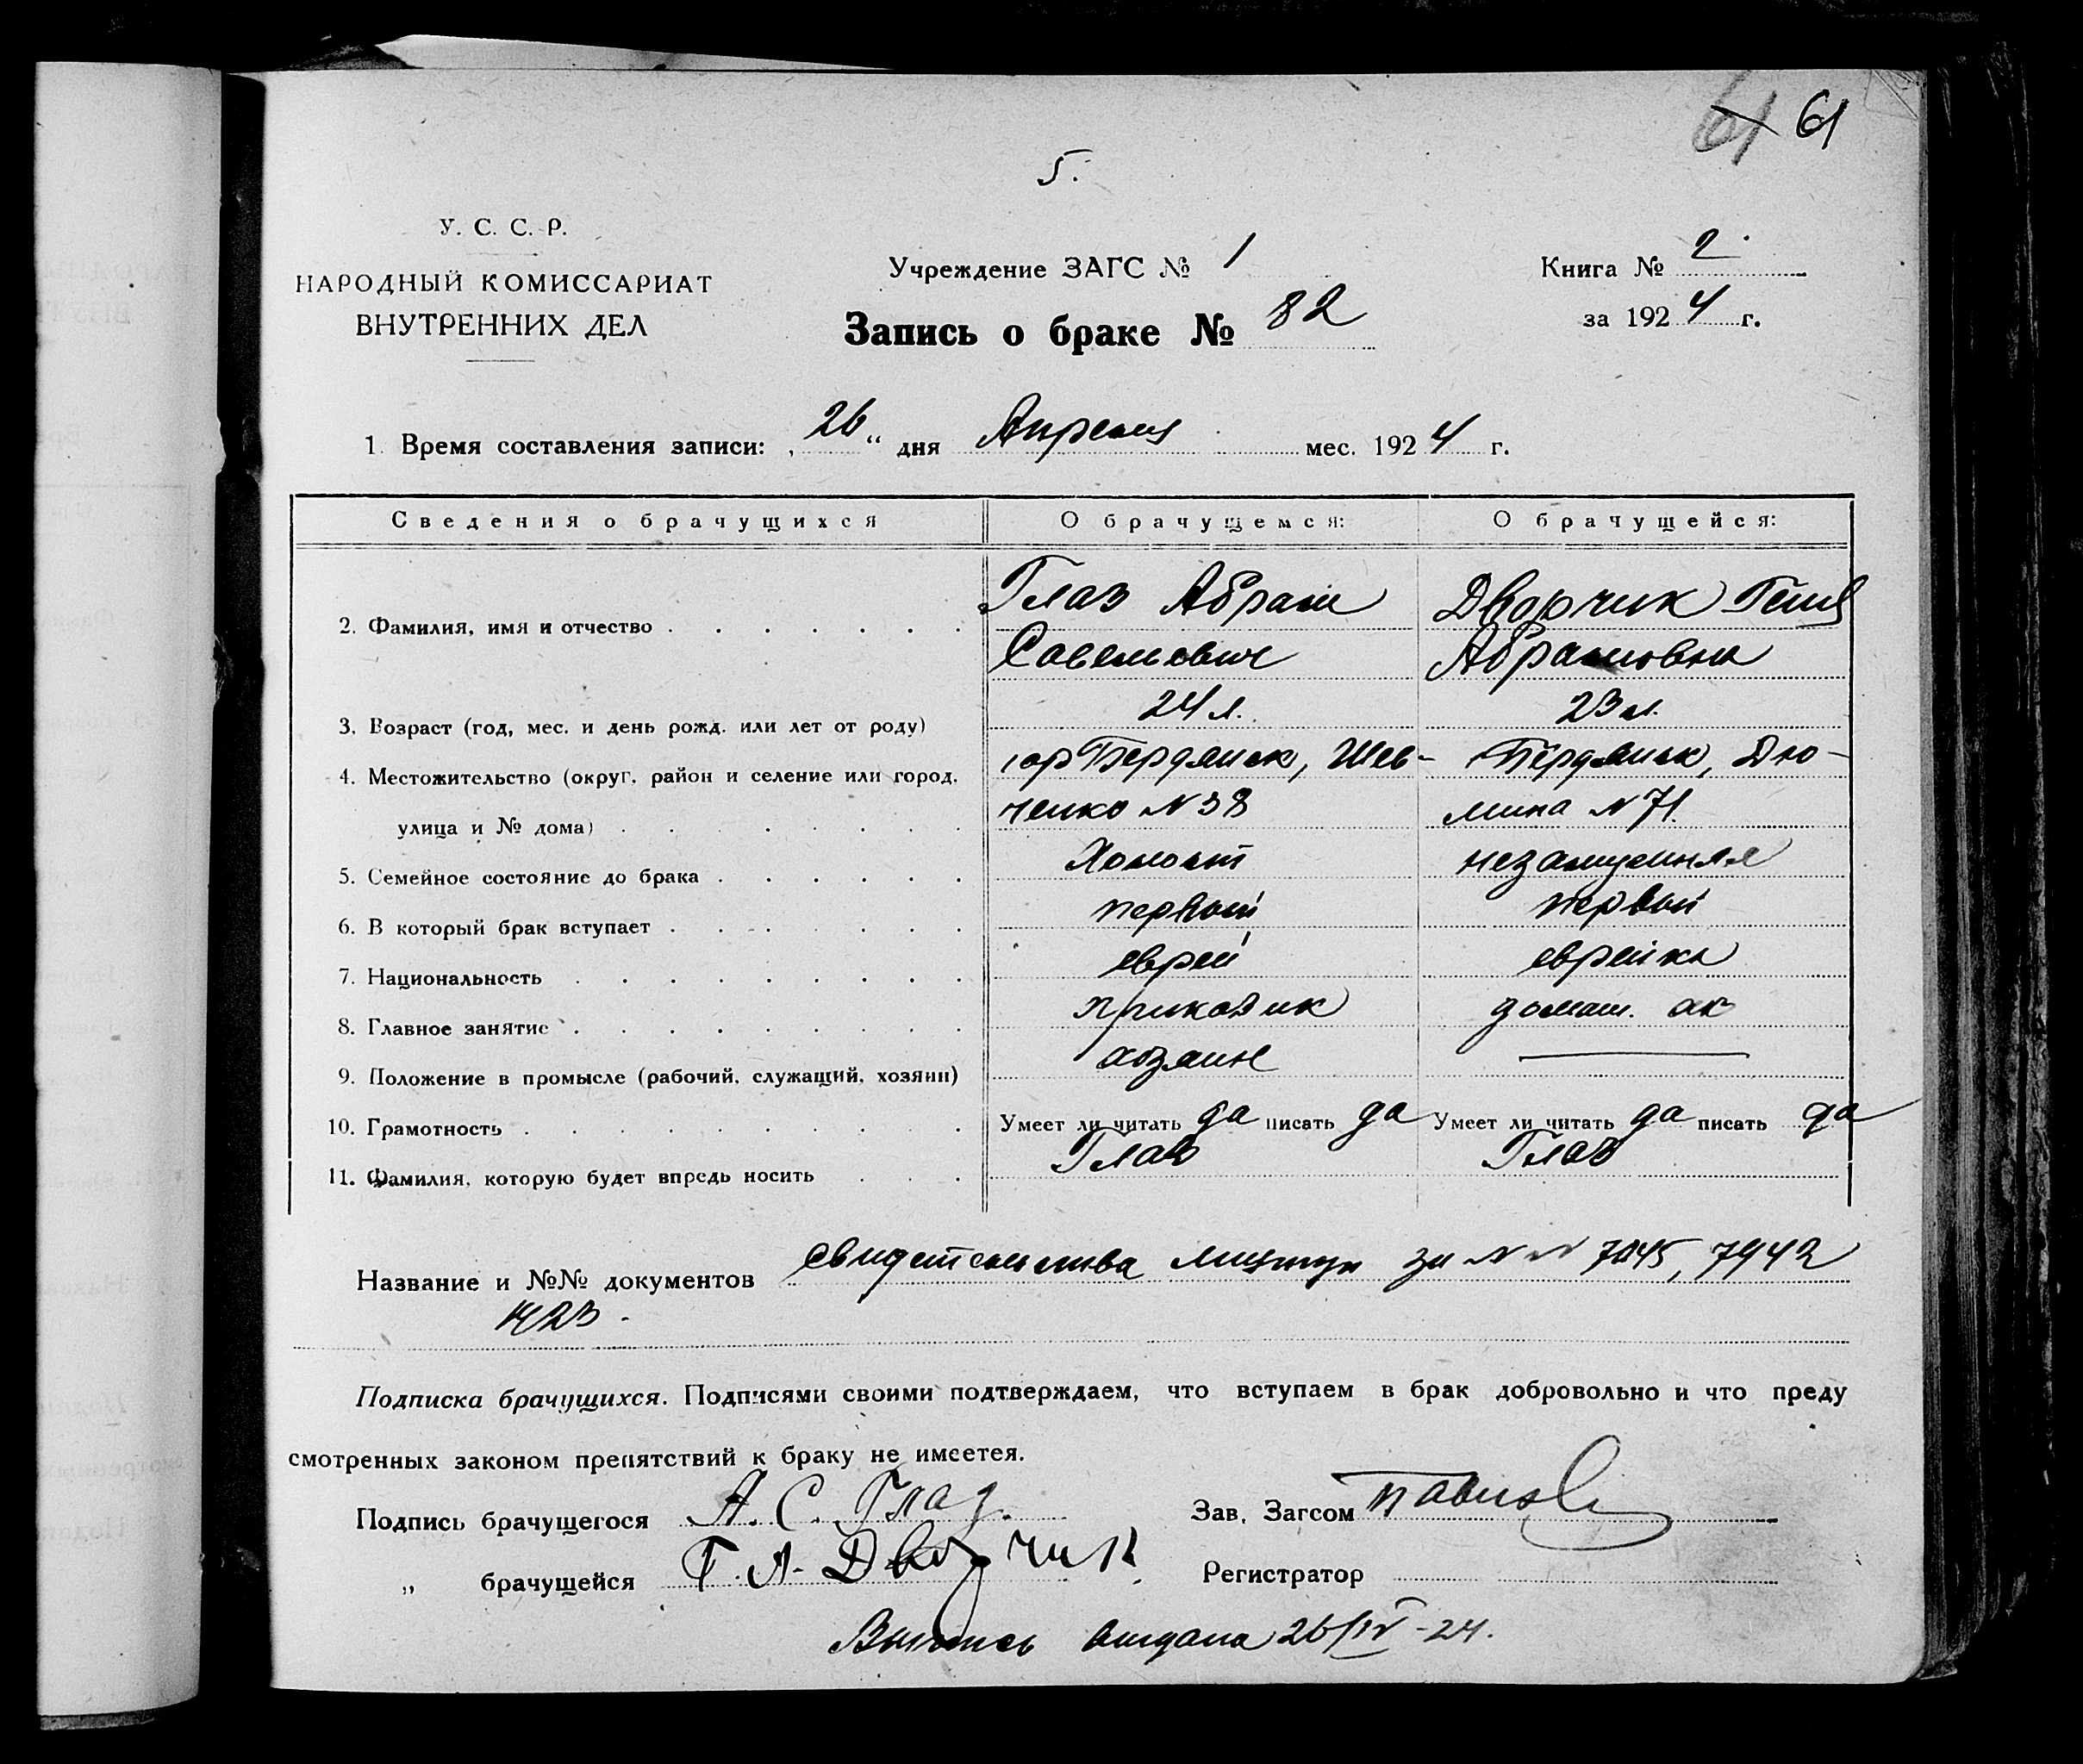 61 61
5.
У. С. С. Р.
НАРОДНЫЙ КОМИССАРИАТ
ВНУТРЕННИХ ДЕЛ
Учреждение ЗАГС № 1
Запись о браке № 82
Книга № 2
за 1924 г.
1. Время составления записи: „26“ дня Апреля мес. 1924 г.
Сведения о брачущихся О брачущемся: О брачущейся:
2. Фамилия, имя и отчество Глаз Абрам Савельевич Дворчик Геня Абрамовна
3. Возраст (год, мес. и день рожд. или лет от роду) 24 л. 23 л.
4. Местожительство (округ, район и селение или город, гор Бердянск, Шев- Бердянск, Дю-
улица и № дома) ченко N 38 мина N 71
5. Семейное состояние до брака Холост незамужняя
6. В который брак вступает первый первый
7. Национальность еврей еврейка
8. Главное занятие домаш.
9. Положение в промысле (рабочий, служащий, хозяин) хозяин —
10. Грамотность Умеет ли читать да писать да Умеет ли читать да писать да
11. Фамилия, которую будет впредь носить Глаз Глаз
Название и №№ документов свидетельства милиции за N N 7045, 7942
1423.
Подписка брачущихся. Подписями своими подтверждаем, что вступаем в брак добровольно и что преду
смотренных законом препятствий к браку не имеется.
Подпись брачущегося А. С. Глаз. Зав. Загсом
„ брачущейся Г. А. Дворчик Регистратор
Выпись выдана 26/IV-24.